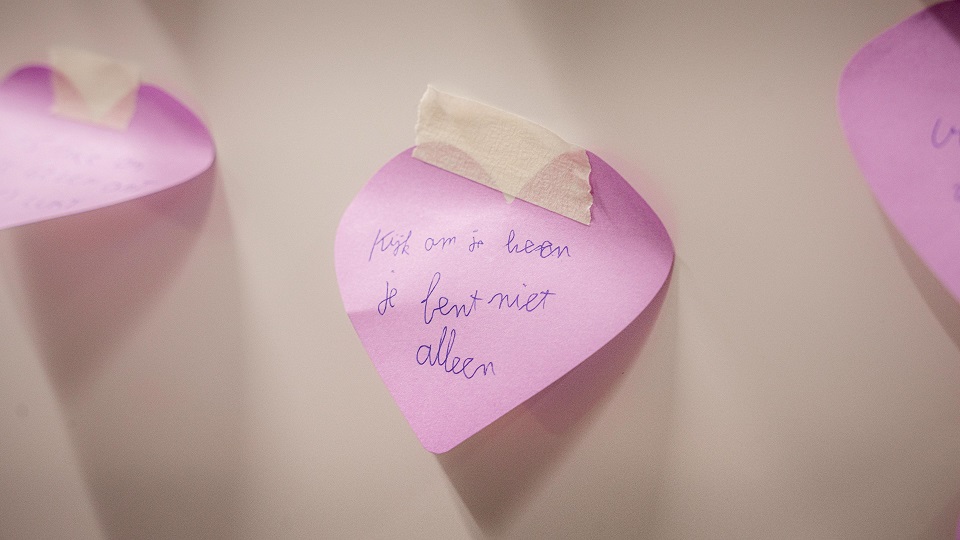 Kijk om je heen
je bent niet
alleen